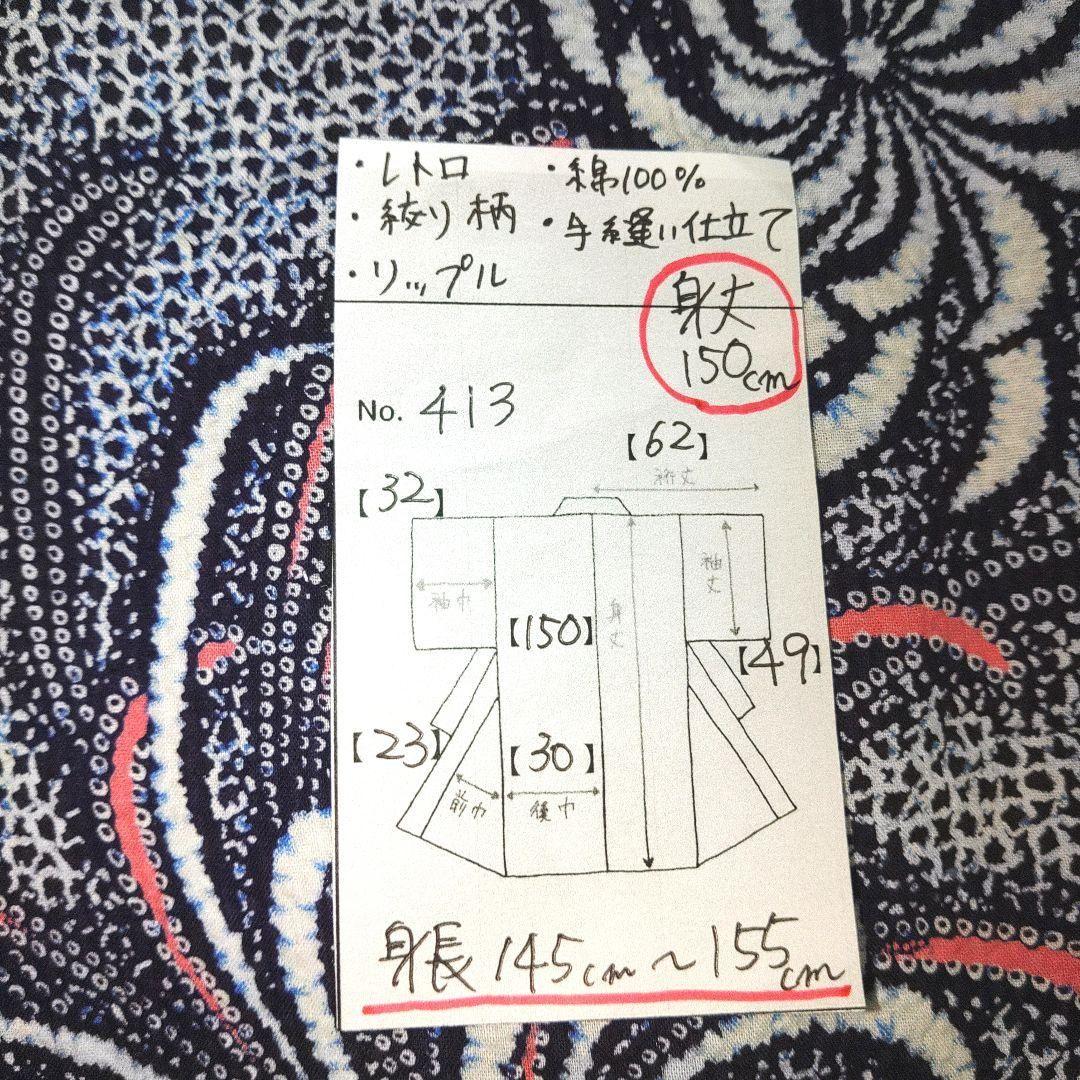 ・レトロ ・綿100%
・絞り柄 ・手縫い仕立て
・リップル
身丈
150cm
No. 413
【62】
裄丈
【32】
袖巾
袖丈
【150】
身丈
【49】
【23】
【30】
前巾
後巾
身長 145cm～155cm